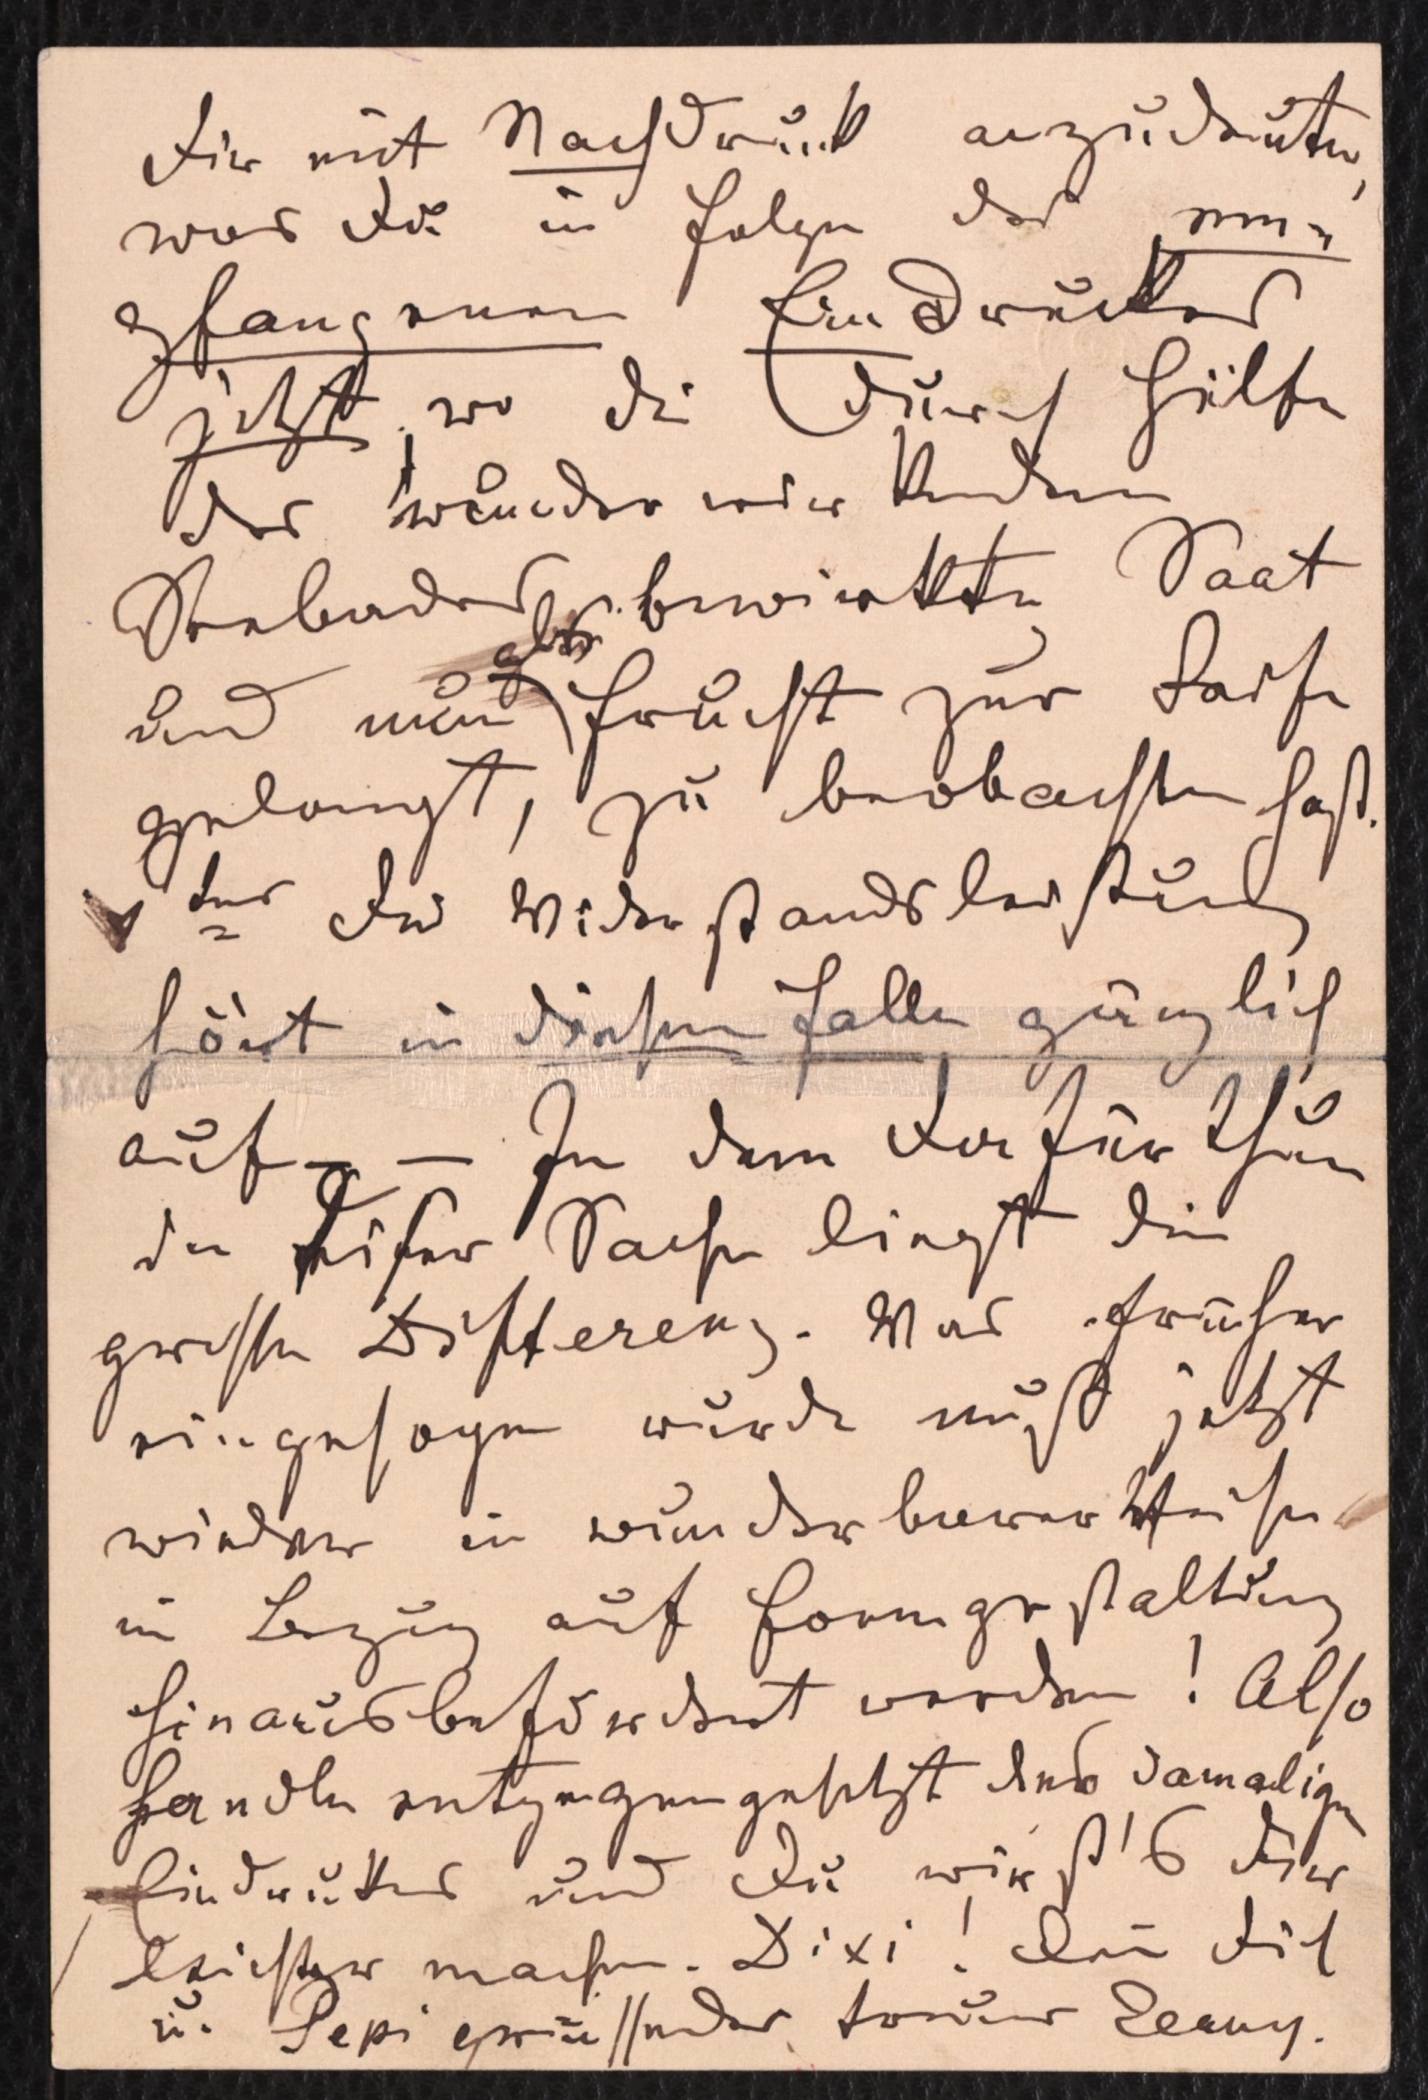 Dir mit Nachdruck anzudeuten,
was Du in Folge des em-
pfangenen Eindruckes
jetzt, wo die durch Hülfe
des wunderwirkenden
Seebades bewirkte Saat
und nun als Frucht zur Reife
gelangt, zu beobachten hast.
Das Die Widerstandsleistung
hört in diesem Falle gänzlich
auf — — In dem Dafürthun
der Sache liegt die
große Differenz. Was früher
eingesogen wurde muß jetzt
wieder in wunderbarer Weise
in Bezug auf Formgestaltung
hinausbefördert werden! Also
handle entgegengesetzt des damaligen
Eindruckes und Du wirst's Dir
leichter machen. Dixi! Dein Dich
u. Pepi grüßender treuer Zerny.